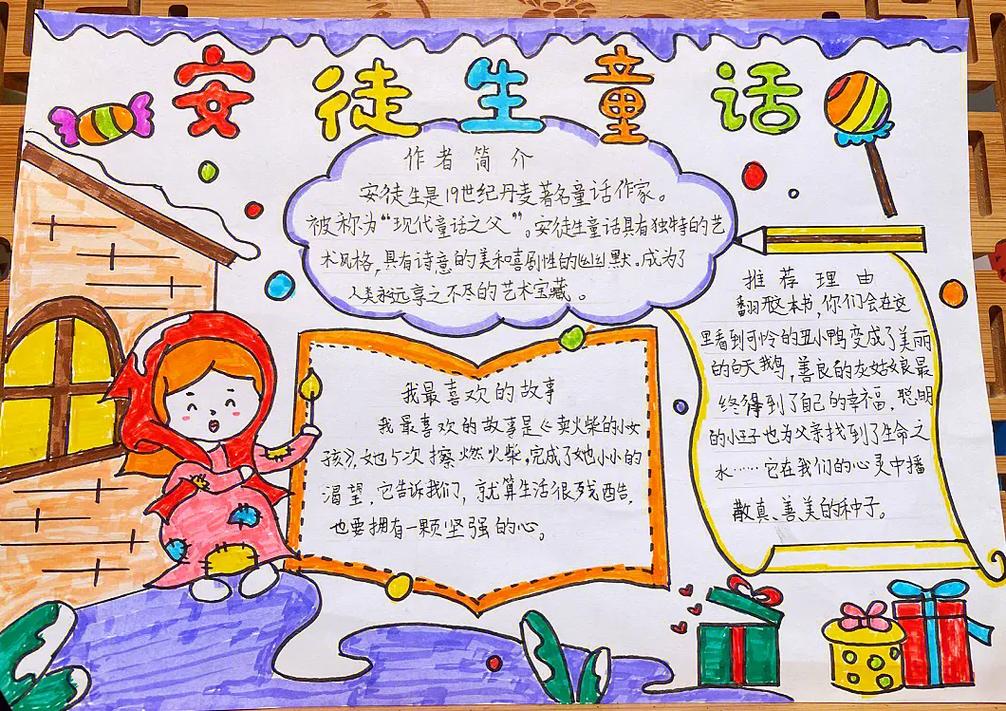 安徒生童话
作者简介
安徒生是19世纪丹麦著名童话作家。
被称为“现代童话之父”。安徒生童话具有独特的艺
术风格，具有诗意的美和喜剧性的幽默。成为了
人类永远享之不尽的艺术宝藏。
我最喜欢的故事
我最喜欢的故事是《卖火柴的小女
孩》，她5次擦燃火柴，完成了她小小的
渴望，它告诉我们，就算生活很残酷，
也要拥有一颗坚强的心。
推荐理由
翻开这本书，你们会在这
里看到可怜的丑小鸭变成了美丽
的白天鹅，善良的灰姑娘最
终得到了自己的幸福，聪明
的小王子也为父亲找到了生命之
水……它在我们的心灵中播
散真、善、美的种子。